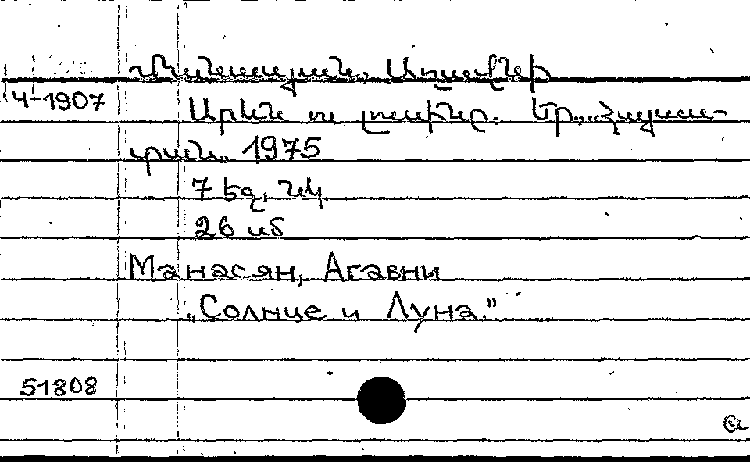 Մանասյան, Աղավնի
Ч-1907
Արևն ու լուսինը. Եր., Հայաս-
տան, 1975
7 եզ. նկ
26 սմ
Манасян, Агавни
„Солнце и Луна."
51808